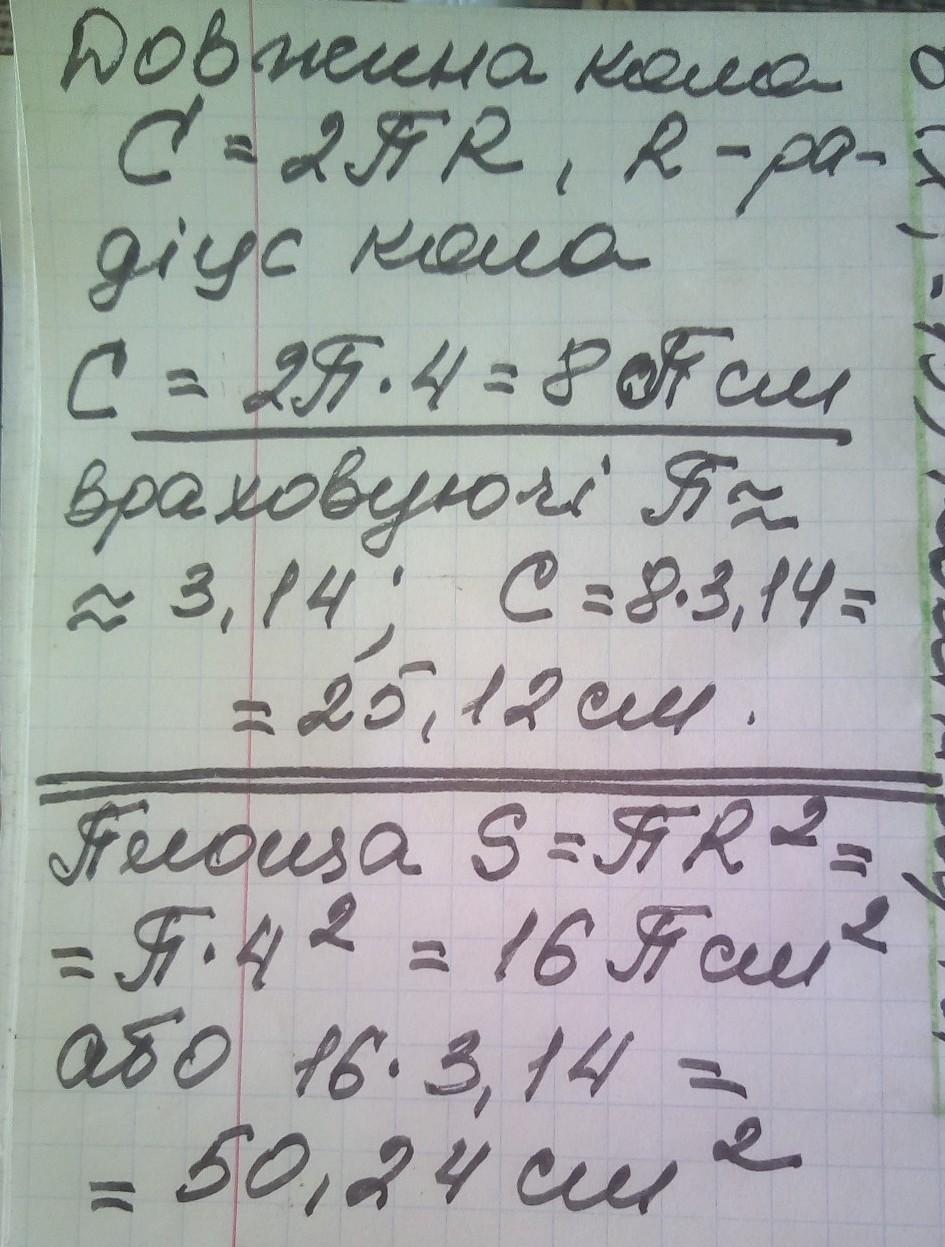 Довжина кола
C = 2πR, R - ра-
діус кола
C = 2π·4 = 8π см
враховуючі π ≈
≈ 3,14; C = 8·3,14 =
= 25,12 см.
Площа S = πR² =
= π·4² = 16π см²
або 16·3,14 =
= 50,24 см²